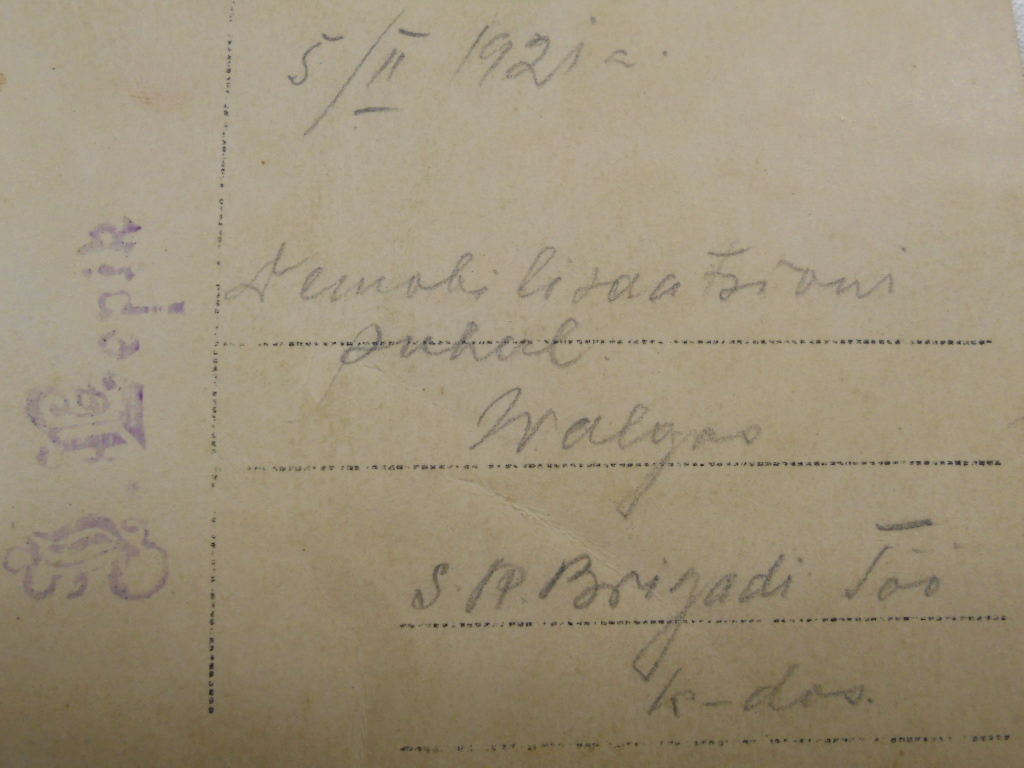 5/II 1921 a.
Demobilisaatsioni
puhul.
Walgas
S. R. Brigadi Töö
k-dos.
Lepik